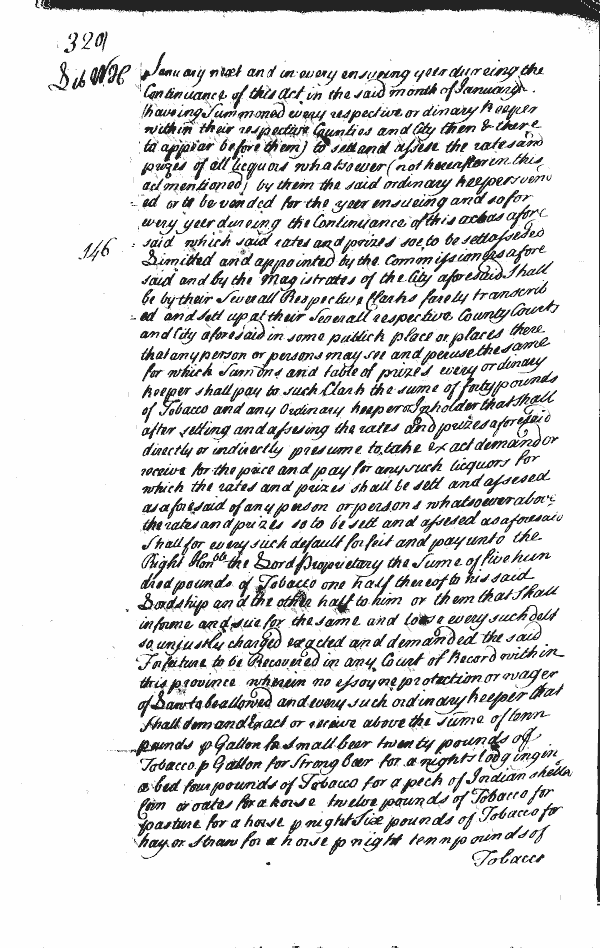 329
Lib WH
January next and in every ensuring year dureing the
Continuance of this Act in the said month of January
(haveing Summoned every respective ordinary keeper
within their respective Counties and City them & there
to appear before them) to sett and assese the rates and
prizes of all liquors whatsoever (not hereafter in this
act mentioned) by them the said ordinary keepers vend
ed or to be vended for the year ensueing and so for
every year dureing the Continuance of this act as afore
146
said which said rates and prizes soe to be sett assessed
Limitted and appointed by the Commissioners afore
said and by the Magistrates of the City aforesaid Shall
be by their Severall Respective Clarks farely transcrib
ed and sett up at their Severall respective County Courts
and City aforesaid in some publick place or places there
that any person or persons may see and peruse the same
for which Sumons and table of prizes every ordinary
keeper shall pay to such Clark the sume of forty pounds
of Tobacco and any Ordinary keeper or Inholder that shall
after setting and assesing the rates and prizes aforesaid
directly or indirectly presume to take exact demand or
receive for the price and pay for any such licquors for
which the rates and prizes shall be sett and assesed
as aforesaid of any person or persons whatsoever above
the rates and prizes so to be sett and assesed as aforesaid
Shall for every such default forfeit and pay unto the
Right Honble the Lord Proprietary the Sume of five hun
dred pounds of Tobacco one half thereof to his said
Lordship and the other half to him or them that Shall
informe and sue for the same and lose every such debt
so unjustly charged exacted and demanded the said
Forfeiture to be Recovered in any Court of Record within
this province wherein no essoyne protection or wager
of Law to be allowed and every such ordinary keeper that
Shall demand Exact or receive above the sume of tenn
pounds p Gallon for Small beer twenty pounds of
Tobacco p Gallon for Strong beer for a nights lodging in
a bed four pounds of Tobacco for a peck of Indian shelld
Corn or oates for a horse twelve pounds of Tobacco for
pasture for a horse p night Six pounds of Tobacco for
hay or Straw for a horse p night tenn pounds of
Tobacco